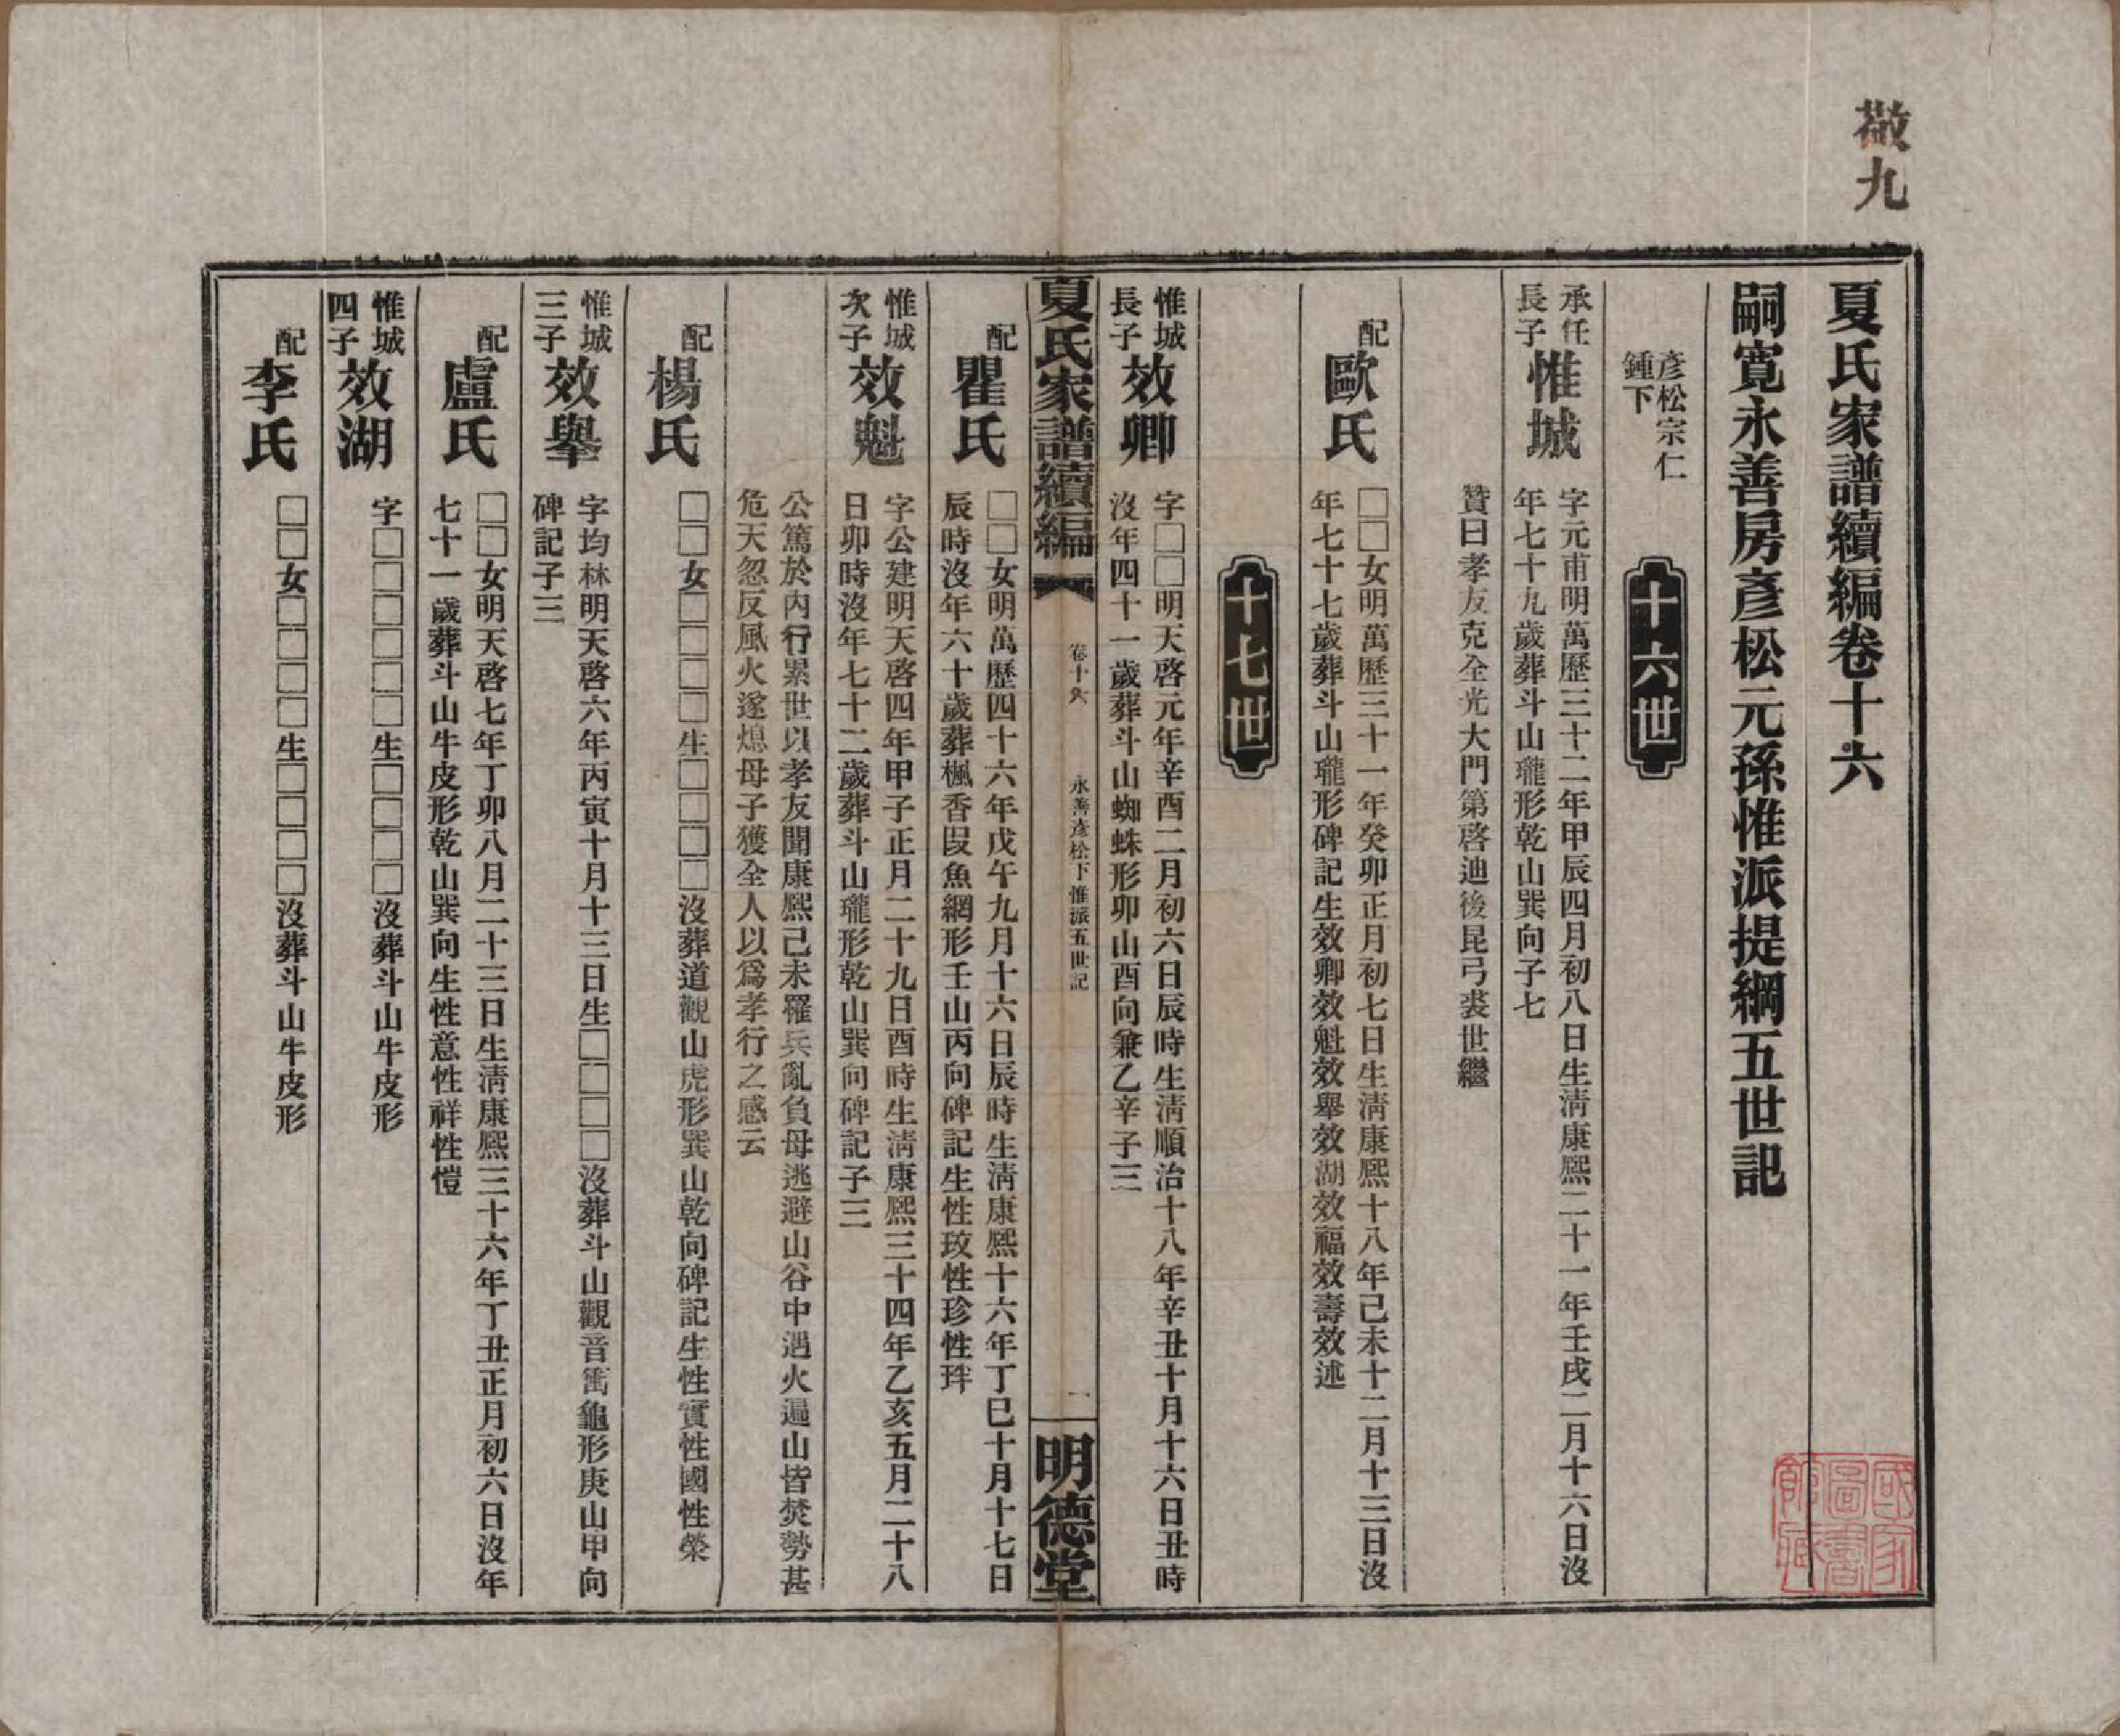 敬九
夏氏家譜續編卷十六
嗣寬永善房彥松元孫惟派提綱五世記
彥松宗仁
鍾下
十六世
承任
長子
惟城
字元甫明萬歷三十二年甲辰四月初八日生淸康熙二十一年壬戌二月十六日沒
年七十九歲葬斗山瓏形乾山巽向子七
贊曰孝友克全光大門第啓迪後昆弓裘世繼
配
歐氏
□□女明萬歷三十一年癸卯正月初七日生淸康熙十八年己未十二月十三日沒
年七十七歲葬斗山瓏形碑記生效卿效魁效舉效湖效福效壽效述
十七世
惟城
長子
效卿
字□□明天啓元年辛酉二月初六日辰時生淸順治十八年辛丑十月十六日丑時
沒年四十一歲葬斗山蜘蛛形卯山酉向兼乙辛子三
夏氏家譜續編
卷十六
永善彥松下惟派五世記
一
明德堂
配
瞿氏
□□女明萬歷四十六年戊午九月十六日辰時生淸康熙十六年丁巳十月十七日
辰時沒年六十歲葬楓香段魚網形壬山丙向碑記生性玟性珍性玶
惟城
次子
效魁
字公建明天啓四年甲子正月二十九日酉時生淸康熙三十四年乙亥五月二十八
日卯時沒年七十二歲葬斗山瓏形乾山巽向碑記子三
公篤於內行累世以孝友聞康熙己未羅兵亂負母逃避山谷中遇火遍山皆焚勢甚
危天忽反風火遂熄母子獲全人以爲孝行之感云
配
楊氏
□□女□□□□生□□□□沒葬道觀山虎形巽山乾向碑記生性實性國性榮
惟城
三子
效舉
字均林明天啓六年丙寅十月十三日生□□□□沒葬斗山觀音衝龜形庚山甲向
碑記子三
配
盧氏
□□女明天啓七年丁卯八月二十三日生淸康熙三十六年丁丑正月初六日沒年
七十一歲葬斗山牛皮形乾山巽向生性意性祥性愷
惟城
四子
效湖
字□□□□□□生□□□□沒葬斗山牛皮形
配
李氏
□□女□□□□生□□□□沒葬斗山牛皮形
國家
圖書
館藏